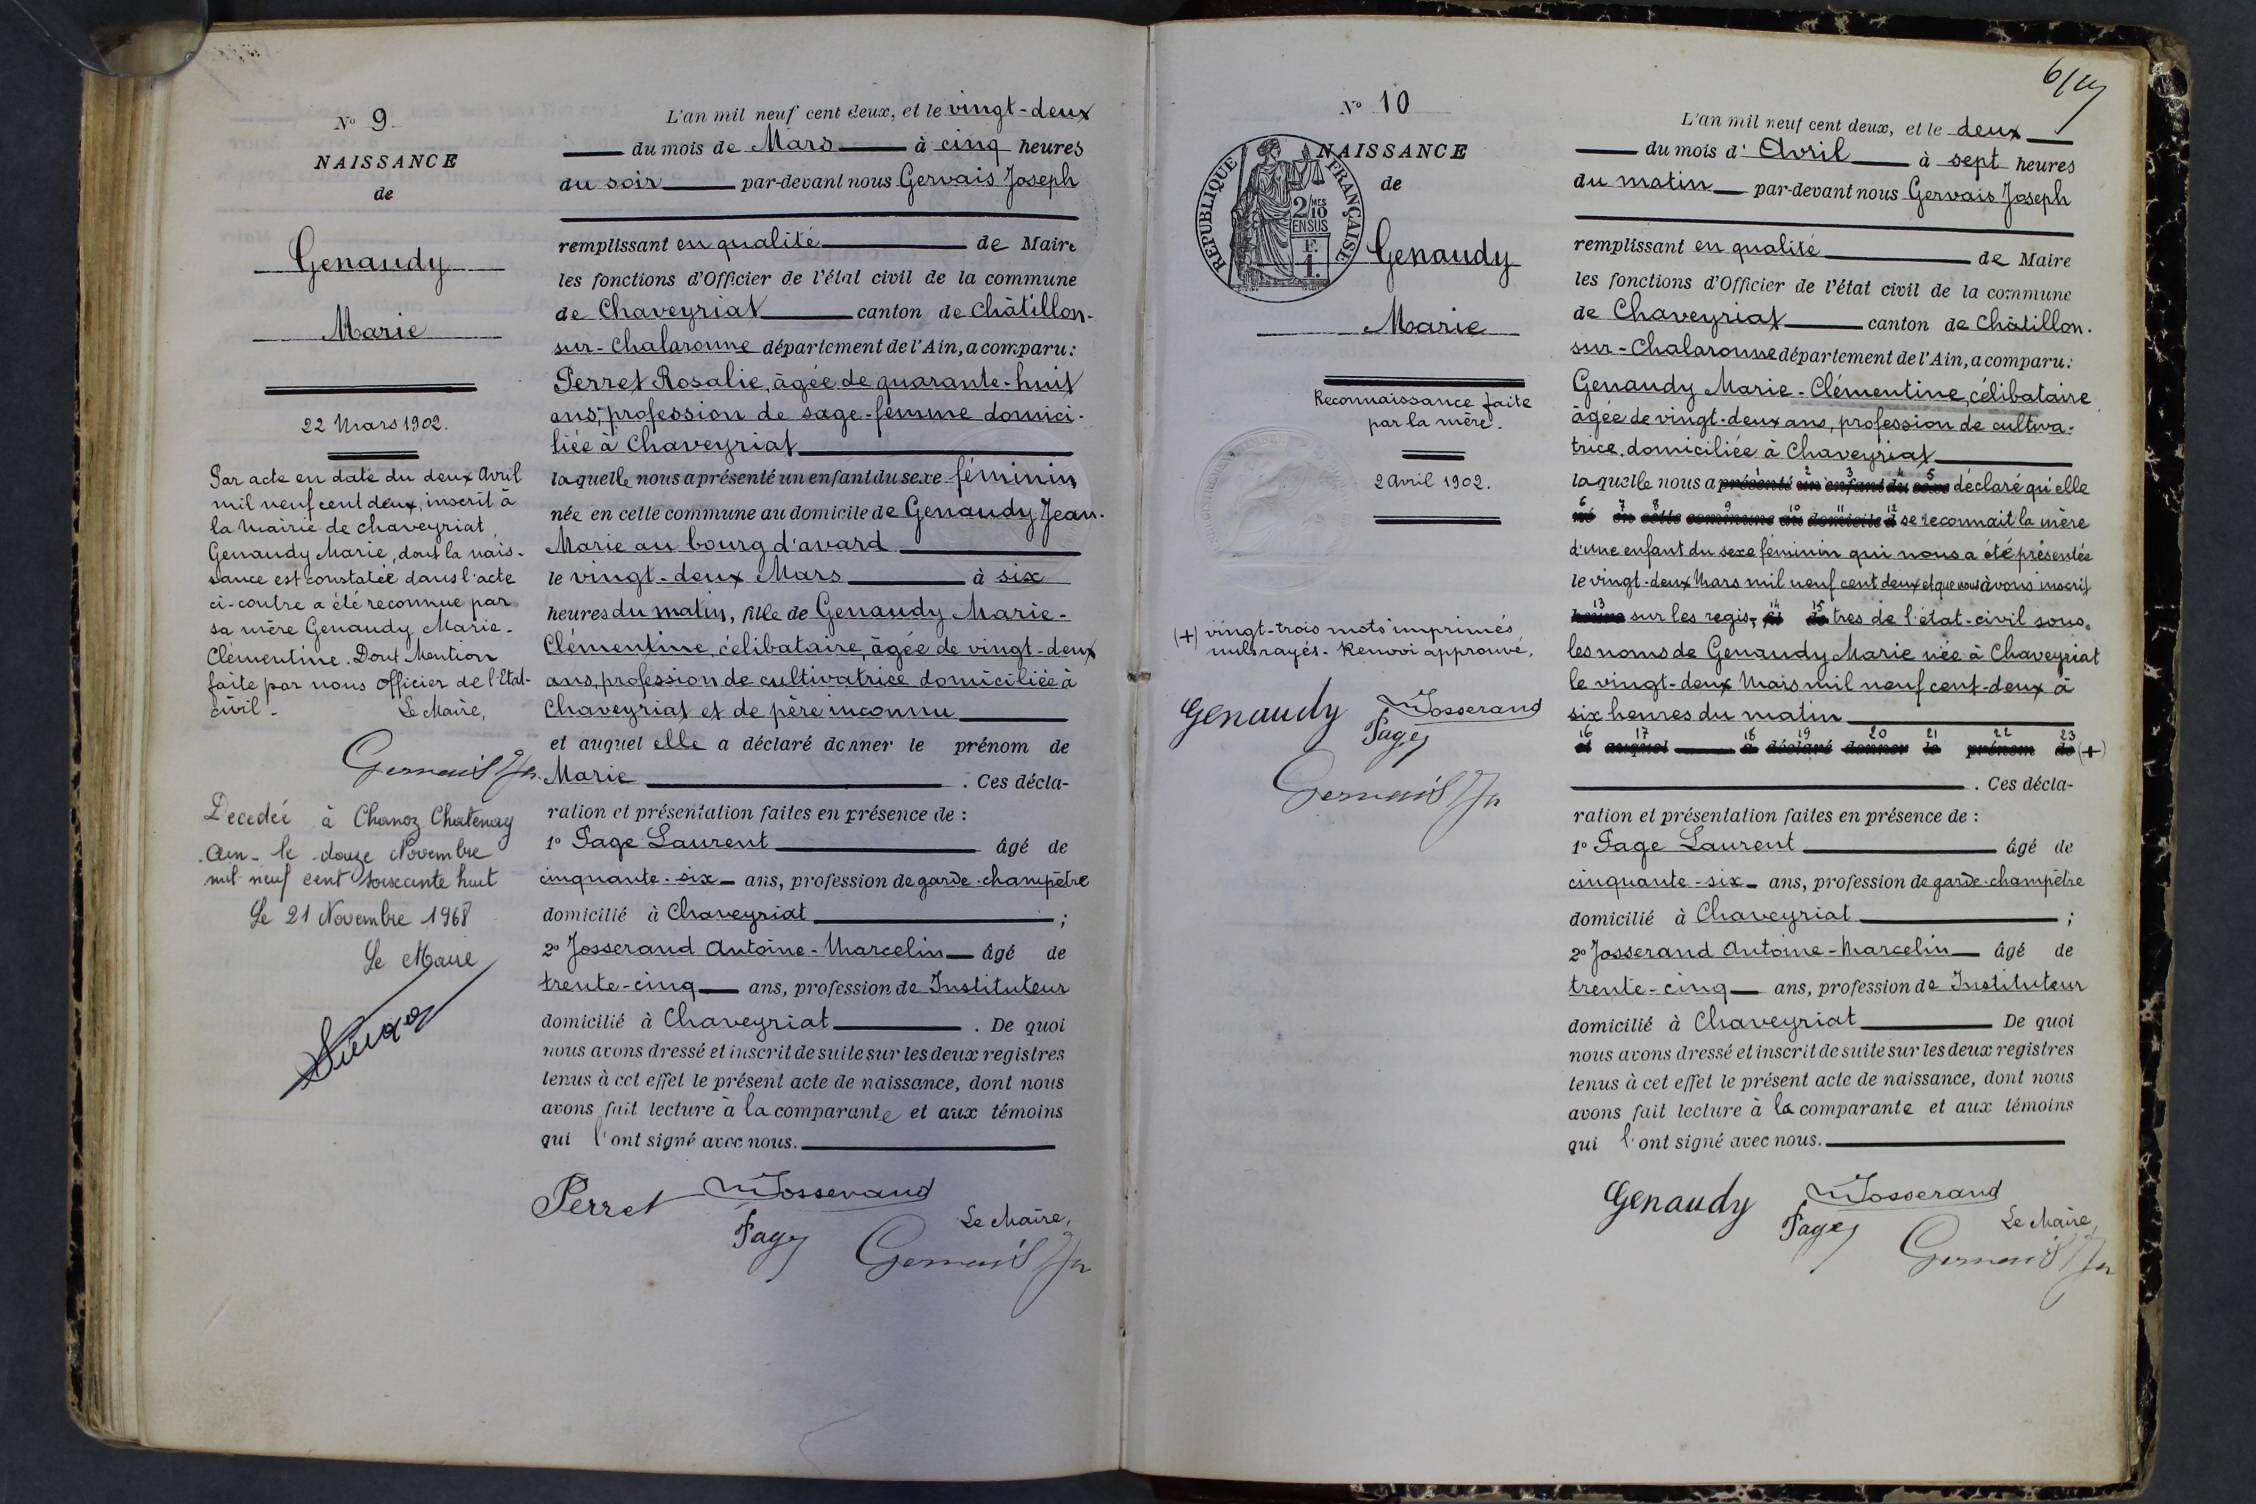 N° 9
NAISSANCE
de
Genaudy
Marie
22 Mars 1902.
Par acte en date du deux Avril
mil neuf cent deux, inscrit à
la Mairie de Chaveyriat,
Genaudy Marie, dont la nais-
sance est constatée dans l'acte
ci-contre a été reconnue par
sa mère Genaudy Marie-
Clémentine. Dont Mention
faite par nous Officier de l'Etat-
civil-
Le Maire,
Gervais Jh
Decedée à Chanoz Chatenay
Ain- le douze Novembre
mil neuf cent soixante huit
Le 21 Novembre 1968
Le Maire
L'an mil neuf cent deux, et le vingt-deux
du mois de Mars à cinq heures
du soir par-devant nous Gervais Joseph
remplissant en qualité de Maire
les fonctions d'Officier de l'état civil de la commune
de Chaveyriat canton de Châtillon-
sur-Chalaronne département de l'Ain, a comparu:
Perret Rosalie, âgée de quarante-huit
ans, profession de sage-femme domici-
liée à Chaveyriat
laquelle nous a présenté un enfant du sexe féminin
née en cette commune au domicile de Genaudy Jean-
Marie au bourg d'avard
le vingt-deux Mars à six
heures du matin, fille de Genaudy Marie-
Clémentine, célibataire, âgée de vingt-deux
ans, profession de cultivatrice domiciliée à
Chaveyriat et de père inconnu
et auquel elle a déclaré donner le prénom de
Marie . Ces décla-
ration et présentation faites en présence de :
1° Page Laurent âgé de
cinquante-six ans, profession de garde-champêtre
domicilié à Chaveyriat ;
2° Josserand Antoine-Marcelin âgé de
trente-cinq ans, profession de Instituteur
domicilié à Chaveyriat . De quoi
nous avons dressé et inscrit de suite sur les deux registres
tenus à cet effet le présent acte de naissance, dont nous
avons fait lecture à la comparante et aux témoins
qui l'ont signé avec nous.
Perret Josserand
Page Le Maire,
Gervais Jh
6/
N° 10
NAISSANCE
de
RÉPUBLIQUE FRANÇAISE
2/10 MES
EN SUS
F.
1.
Genaudy
Marie
Reconnaissance faite
par la mère.
2 Avril 1902.
(+) vingt-trois mots imprimés
nuls rayés. Renvoi approuvé,
Genaudy Josserand
Page
Gervais Jh
L'an mil neuf cent deux, et le deux
du mois d'Avril à sept heures
du matin par-devant nous Gervais Joseph
remplissant en qualité de Maire
les fonctions d'Officier de l'état civil de la commune
de Chaveyriat canton de Châtillon-
sur-Chalaronne département de l'Ain, a comparu:
Genaudy Marie-Clémentine, célibataire
âgée de vingt-deux ans, profession de cultiva-
trice, domiciliée à Chaveyriat
1 2 3 4 5
laquelle nous a présenté un enfant du sexe déclaré qu'elle
6 7 8 9 10 11 12
né en cette commune au domicile d se reconnait la mère
d'une enfant du sexe féminin qui nous a été présentée
le vingt-deux Mars mil neuf cent deux et que nous avons inscrit
13 14 15
heures sur les regis- et de tres de l'état-civil sous
les noms de Genaudy Marie née à Chaveyriat
le vingt-deux Mars mil neuf cent-deux à
six heures du matin
16 17 18 19 20 21 22 23
et auquel a déclaré donner le prénom de (+)
. Ces décla-
ration et présentation faites en présence de :
1° Page Laurent âgé de
cinquante-six ans, profession de garde-champêtre
domicilié à Chaveyriat ;
2° Josserand Antoine-Marcelin âgé de
trente-cinq ans, profession de Instituteur
domicilié à Chaveyriat De quoi
nous avons dressé et inscrit de suite sur les deux registres
tenus à cet effet le présent acte de naissance, dont nous
avons fait lecture à la comparante et aux témoins
qui l'ont signé avec nous.
Genaudy Josserand
Page Le Maire,
Gervais Jh